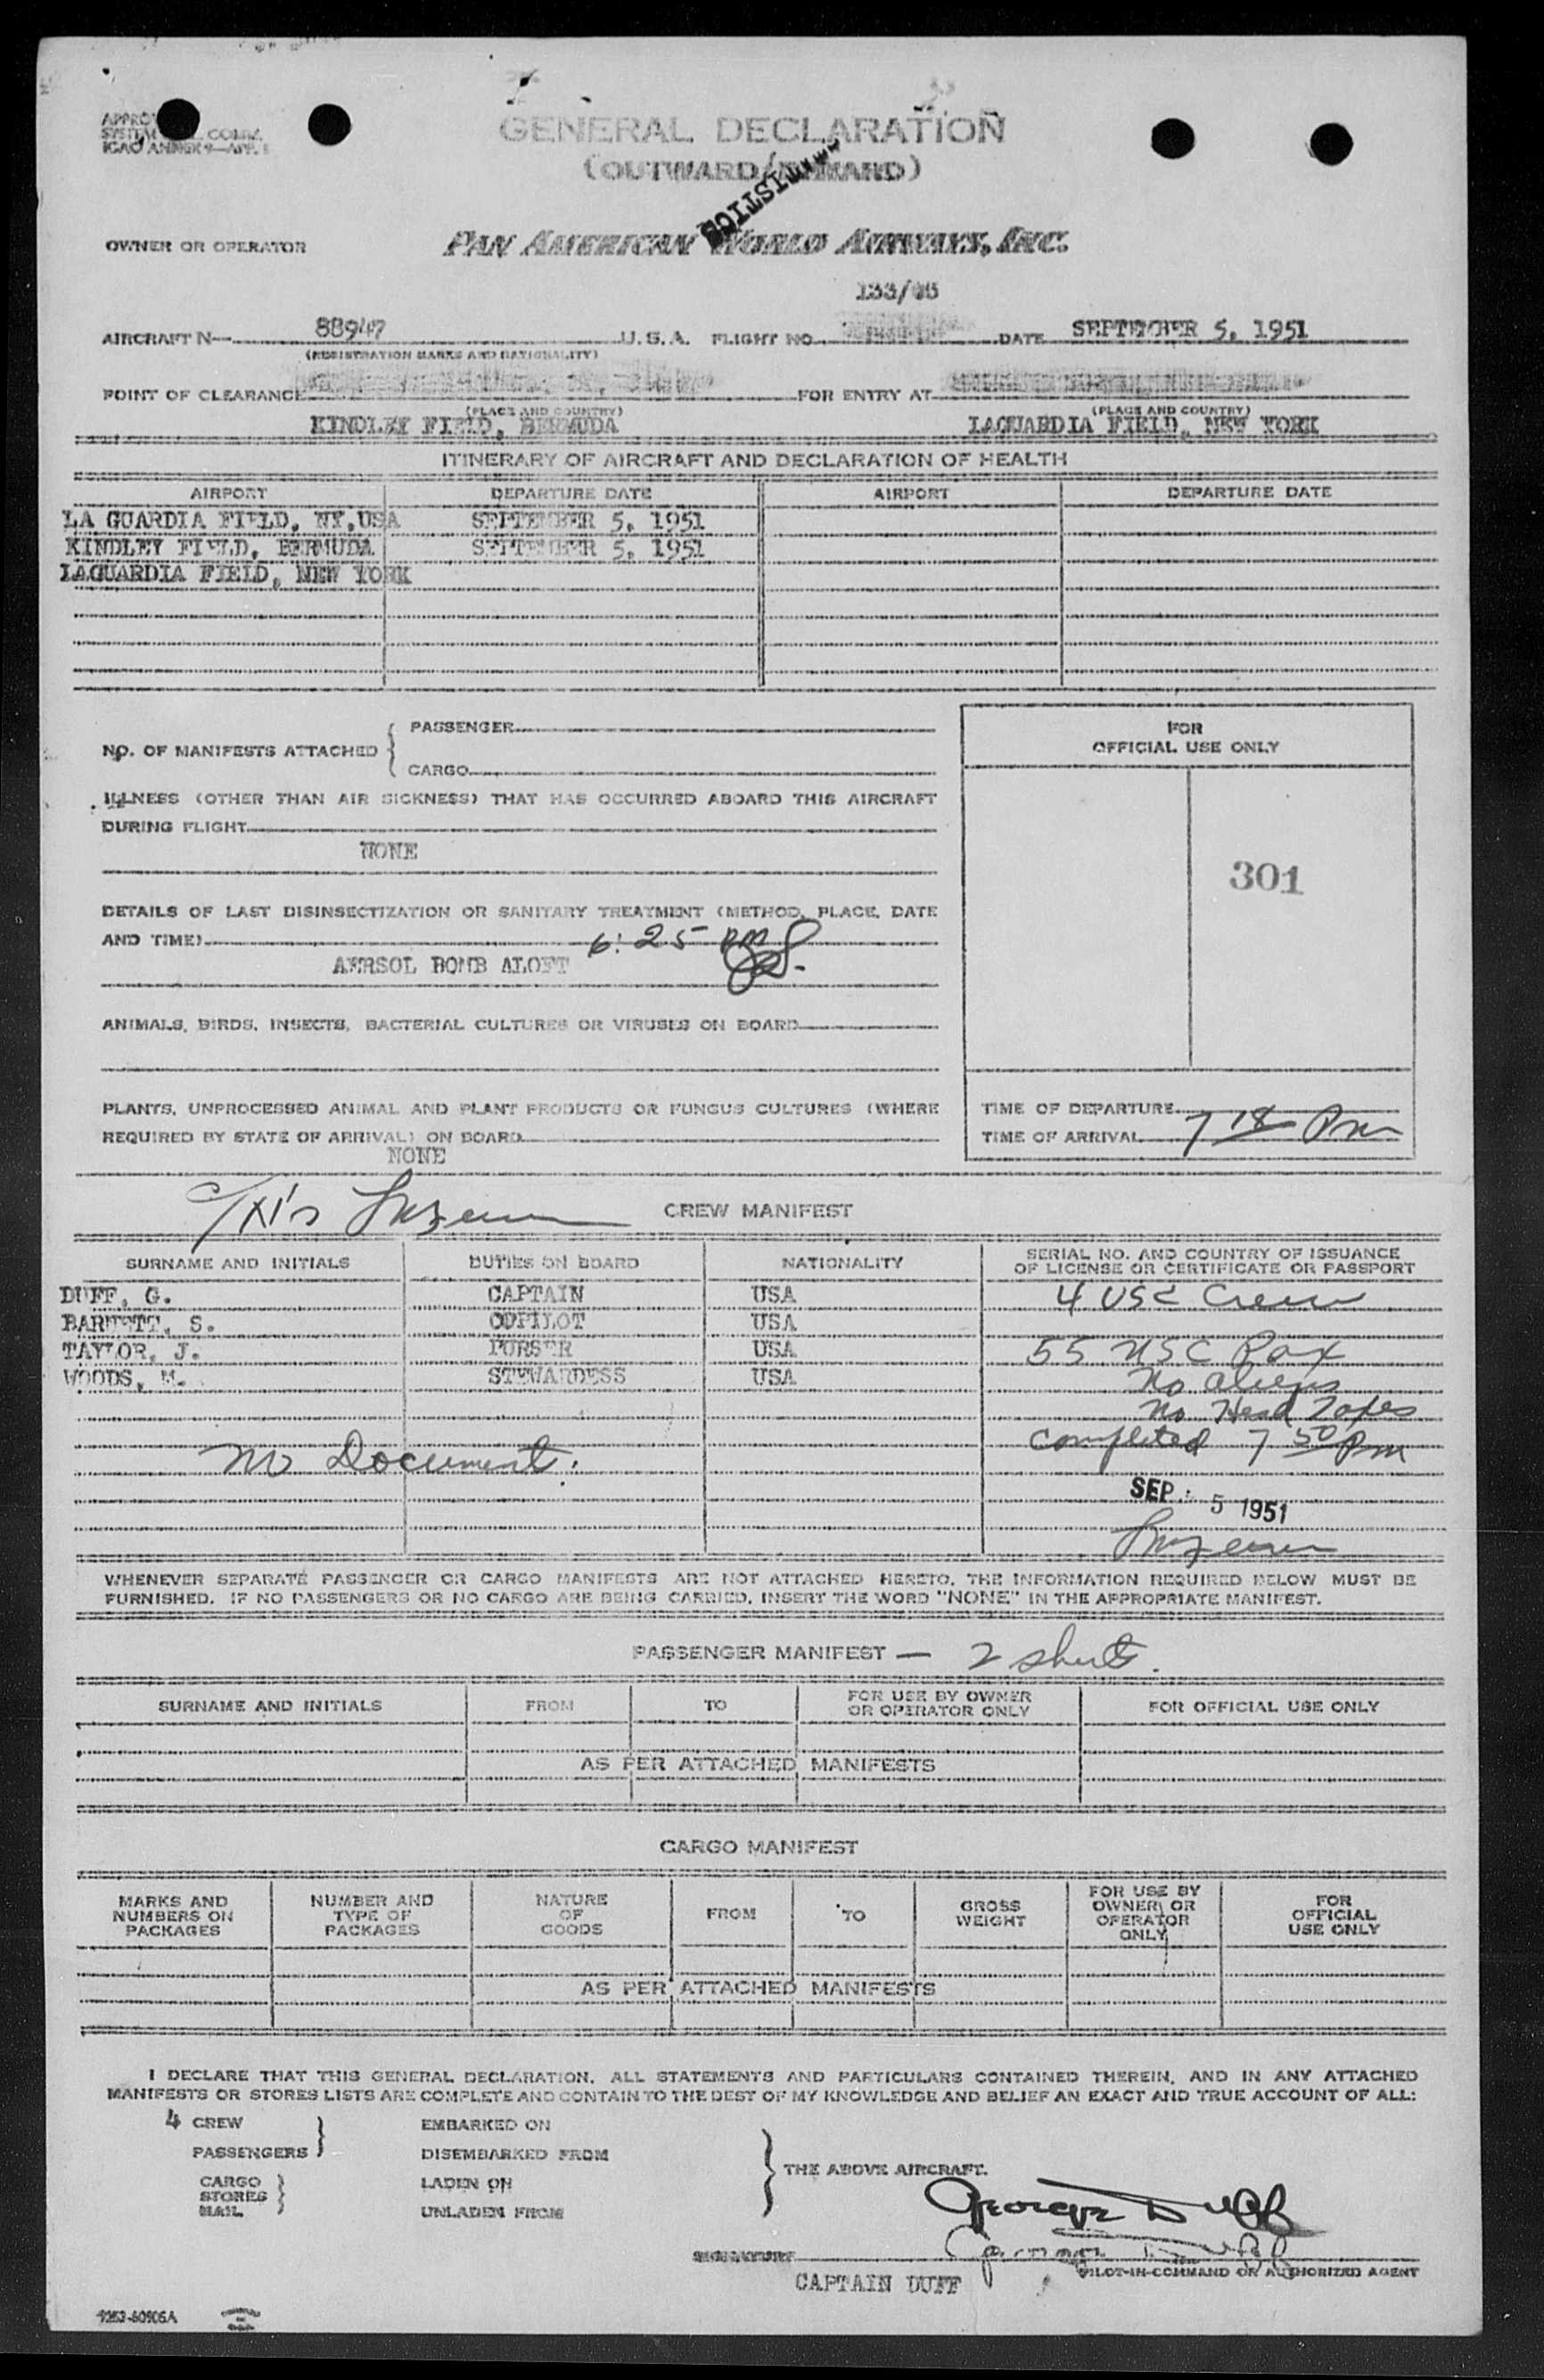 GENERAL DECLARATION
(OUTWARD/INWARD)
OWNER OR OPERATOR PAN AMERICAN WORLD AIRWAYS, INC.
AIRCRAFT N— 88947 U.S.A. FLIGHT NO. DATE SEPTEMBER 5, 1951
(REGISTRATION MARKS AND NATIONALITY)
POINT OF CLEARANCE FOR ENTRY AT
(PLACE AND COUNTRY) (PLACE AND COUNTRY)
KINDLEY FIELD, BERMUDA LAGUARDIA FIELD, NEW YORK
ITINERARY OF AIRCRAFT AND DECLARATION OF HEALTH
AIRPORT DEPARTURE DATE AIRPORT DEPARTURE DATE
LA GUARDIA FIELD, NY,USA SEPTEMBER 5, 1951
KINDLEY FIELD, BERMUDA SEPTEMBER 5, 1951
LAGUARDIA FIELD, NEW YORK
NO. OF MANIFESTS ATTACHED { PASSENGER
CARGO
FOR
OFFICIAL USE ONLY
301
ILLNESS (OTHER THAN AIR SICKNESS) THAT HAS OCCURRED ABOARD THIS AIRCRAFT
DURING FLIGHT
NONE
DETAILS OF LAST DISINSECTIZATION OR SANITARY TREATMENT (METHOD, PLACE, DATE
AND TIME) 6:25 pm
AERSOL BOMB ALOFT
ANIMALS, BIRDS, INSECTS, BACTERIAL CULTURES OR VIRUSES ON BOARD
PLANTS, UNPROCESSED ANIMAL AND PLANT PRODUCTS OR FUNGUS CULTURES (WHERE
REQUIRED BY STATE OF ARRIVAL) ON BOARD
NONE
TIME OF DEPARTURE
TIME OF ARRIVAL 7 18 Pm
CREW MANIFEST
SURNAME AND INITIALS DUTIES ON BOARD NATIONALITY SERIAL NO. AND COUNTRY OF ISSUANCE
OF LICENSE OR CERTIFICATE OR PASSPORT
DUFF, G. CAPTAIN USA 4 USC Crew
BARNETT, S. COPILOT USA
TAYLOR, J. PURSER USA 55 USC Pax
WOODS, M. STEWARDESS USA No aliens
No Head Taxes
No Document. Completed 7 50 Pm
SEP 5 1951
WHENEVER SEPARATE PASSENGER OR CARGO MANIFESTS ARE NOT ATTACHED HERETO, THE INFORMATION REQUIRED BELOW MUST BE
FURNISHED. IF NO PASSENGERS OR NO CARGO ARE BEING CARRIED, INSERT THE WORD "NONE" IN THE APPROPRIATE MANIFEST.
PASSENGER MANIFEST — 2 sheets.
SURNAME AND INITIALS FROM TO FOR USE BY OWNER
OR OPERATOR ONLY FOR OFFICIAL USE ONLY
AS PER ATTACHED MANIFESTS
CARGO MANIFEST
MARKS AND
NUMBERS ON
PACKAGES
NUMBER AND
TYPE OF
PACKAGES
NATURE
OF
GOODS
FROM
TO
GROSS
WEIGHT
FOR USE BY
OWNER OR
OPERATOR
ONLY
FOR
OFFICIAL
USE ONLY
AS PER ATTACHED MANIFESTS
I DECLARE THAT THIS GENERAL DECLARATION, ALL STATEMENTS AND PARTICULARS CONTAINED THEREIN, AND IN ANY ATTACHED
MANIFESTS OR STORES LISTS ARE COMPLETE AND CONTAIN TO THE BEST OF MY KNOWLEDGE AND BELIEF AN EXACT AND TRUE ACCOUNT OF ALL:
4 CREW EMBARKED ON
PASSENGERS } DISEMBARKED FROM
CARGO LADEN ON } THE ABOVE AIRCRAFT.
STORES }
MAIL UNLADEN FROM
George Duff
SIGNATURE
PILOT-IN-COMMAND OR AUTHORIZED AGENT
CAPTAIN DUFF